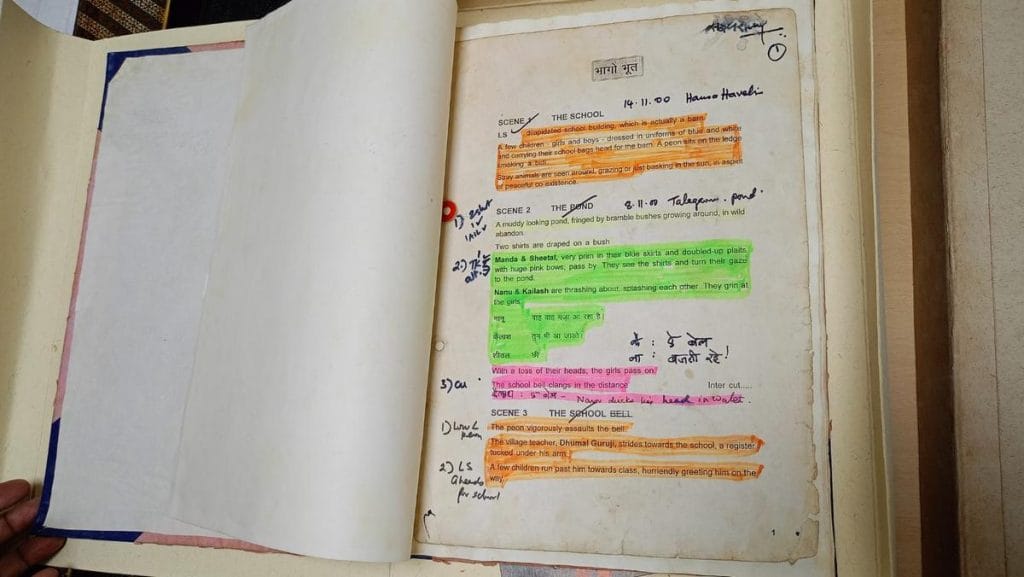 1
भागो भूत
14.11.00 Hansa Haveli
SCENE 1 THE SCHOOL
LS drapidated school building, which is actually a barn
A few children - girls and boys - dressed in uniforms of blue and white
and carrying their school bags head for the barn. A peon sits on the ledge
smoking a bidi.
Stray animals are seen around, grazing or just basking in the sun, in aspirit
of peaceful co existence.
SCENE 2 THE POND 8.11.00 Talegaon. pond.
1)
A muddy looking pond, fringed by bramble bushes growing around, in wild
abandon.
Two shirts are draped on a bush
2)
Manda & Sheetal, very prim in their blue skirts and doubled-up plaits,
with huge pink bows; pass by. They see the shirts and turn their gaze
to the pond.
Nanu & Kailash are thrashing about, splashing each other. They grin at
the girls.
नानू वाह वाह मजा आ रहा है।
कैलाश तुम भी आ जाओ।
शीतल छी
के : दे बेल
ना : बजती रहे!
With a toss of their heads, the girls pass on
3) CU
The school bell clangs in the distance Inter cut.....
Nanu ducks his head in water.
SCENE 3 THE SCHOOL BELL
1) Low L peon
The peon vigorously assaults the bell.
The village teacher, Dhumal Guruji, strides towards the school, a register
tucked under his arm.
2) LS
A few children run past him towards class, hurriendly greeting him on the
way.
for school
1